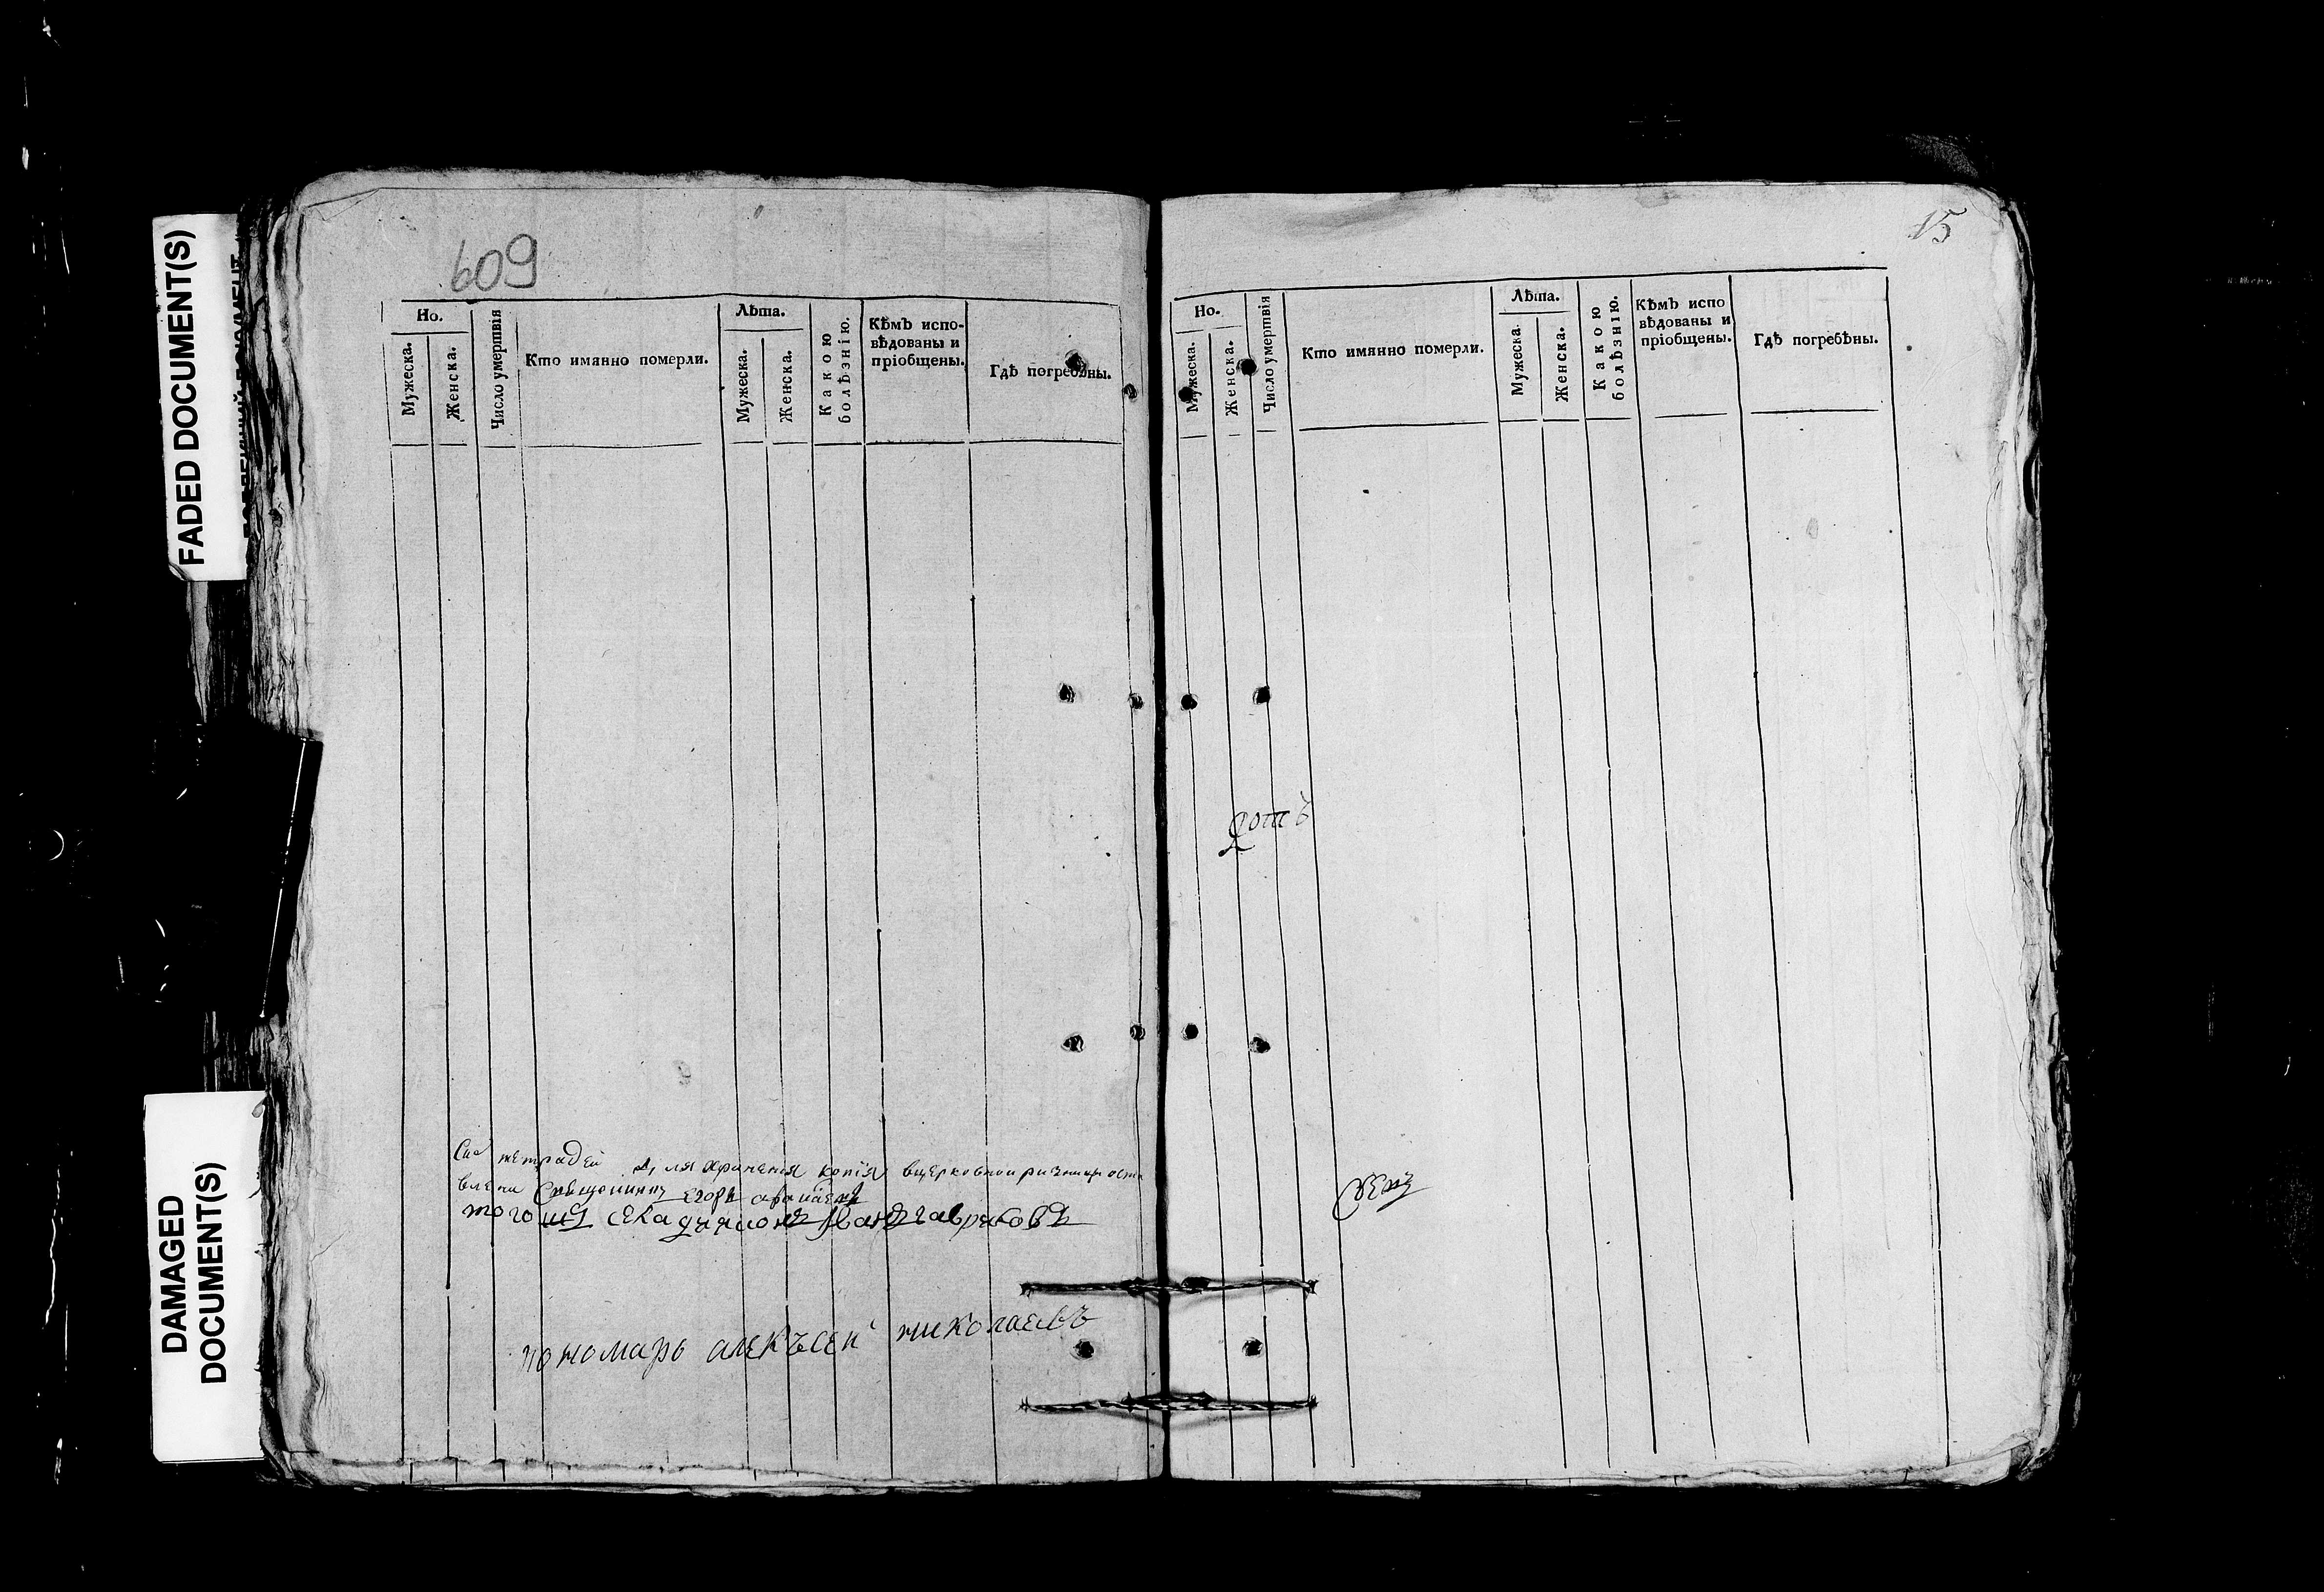 FADED DOCUMENT(S)
DAMAGED
DOCUMENT(S)
609
Но.
Мужеска.
Женска.
Число умертвія
Кто имянно померли.
Лѣта.
Мужеска.
Женска.
Какою
болѣзнію.
Кѣмъ испо-
вѣдованы и
пріобщены.
Гдѣ погребѣны.
тетрадей для храненія копія вцерковной ризницѣ оста
влена Священникъ егоръ
тогожъ села диаконъ Иванъ гавриловъ
пономарь алекъсей николаевъ
15
Но.
Мужеска.
Женска.
Число умертвія
Кто имянно померли.
Лѣта.
Мужеска.
Женска.
Какою
болѣзнію.
Кѣмъ испо
вѣдованы и
пріобщены.
Гдѣ погребѣны.